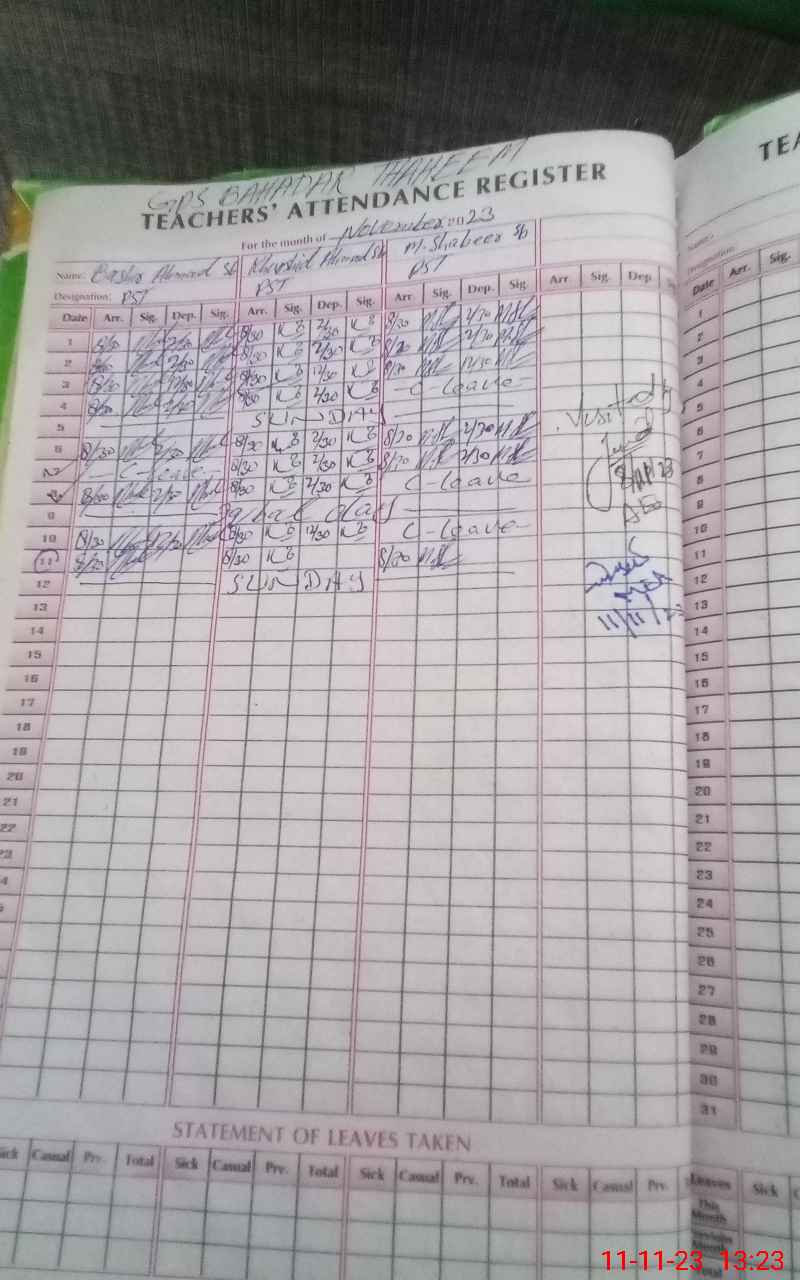 GPS BAHADAR THAHEEM
TEACHERS' ATTENDANCE REGISTER
For the month of November 2023
Name: Bashir Ahmad Sb Khurshid Ahmad Sb M. Shabeer Sb
Designation: PST PST PST
Date Arr. Sig. Dep. Sig. Arr. Sig. Dep. Sig. Arr. Sig. Dep. Sig. Arr. Sig. Dep
1 8/30 2/30 8/30 KB 2/30 KB 8/30 2/30
2 8/30 2/30 8/30 KB 2/30 KB 8/30 2/30
3 8/30 12/30 8/30 KB 12/30 KB 8/30 12/30
4 8/30 2/30 8/30 KB 2/30 KB C-leave
5 SUNDAY
6 8/30 2/30 8/30 KB 2/30 KB 8/30 2/30
7 C-leave 8/30 KB 2/30 KB 8/30 2/30
8 8/30 2/30 8/30 KB 2/30 KB C-leave
9 Iqbal day
10 8/30 12/30 8/30 KB 12/30 KB C-leave
11 8/30 8/30 KB 8/30
12 SUNDAY
13
14
15
16
17
18
19
20
21
22
23
Visited
AEO
11/11/23
STATEMENT OF LEAVES TAKEN
Sick Casual Prv. Total Sick Casual Prv. Total Sick Casual Prv. Total Sick Casual Prv.
TEA
Name:
Designation
Date Arr. Sig.
1
2
3
4
5
6
7
8
9
10
11
12
13
14
15
16
17
18
19
20
21
22
23
24
25
26
27
28
29
30
31
Leaves Sick
This Month
Total
11-11-23 13:23